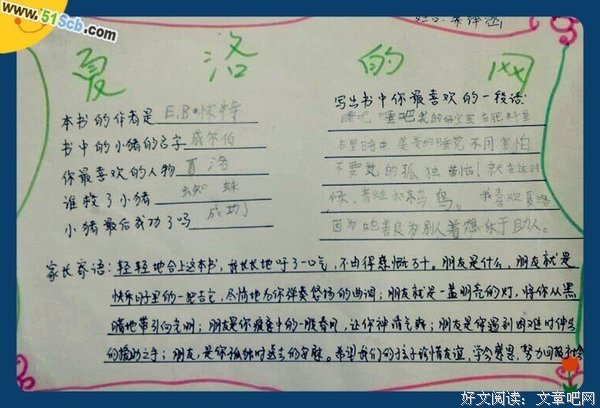 www.51Scb.com
夏洛的网
本书的作者是 E.B•怀特
书中的小猪的名字 威尔伯
你最喜欢的人物 夏洛
谁救了小猪 蜘蛛
小猪最后成功了吗 成功了
写出书中你最喜欢的一段话:
睡吧,睡吧我的
在黑暗中 的睡觉不用害怕
不要 的孤独 就在这时
候,青蛙和 鸟 我喜欢夏洛
因为她善良为别人着想乐于助人。
家长寄语:轻轻地合上这本书,我长长地呼了一口气,不由得感慨万千。朋友是什么,朋友就是
快乐时里的一把吉它,尽情地为你弹奏 的曲调;朋友就是一盏明亮的灯,将你从黑
暗地带引向光明;朋友是你疲惫中的一股春风,让你神清气爽;朋友是你遇到困难时伸出
的援助之手;朋友,是你孤独时 的安慰。希望我们的孩子珍惜友谊,学会感恩,努力回报社会
好文阅读:文章吧网